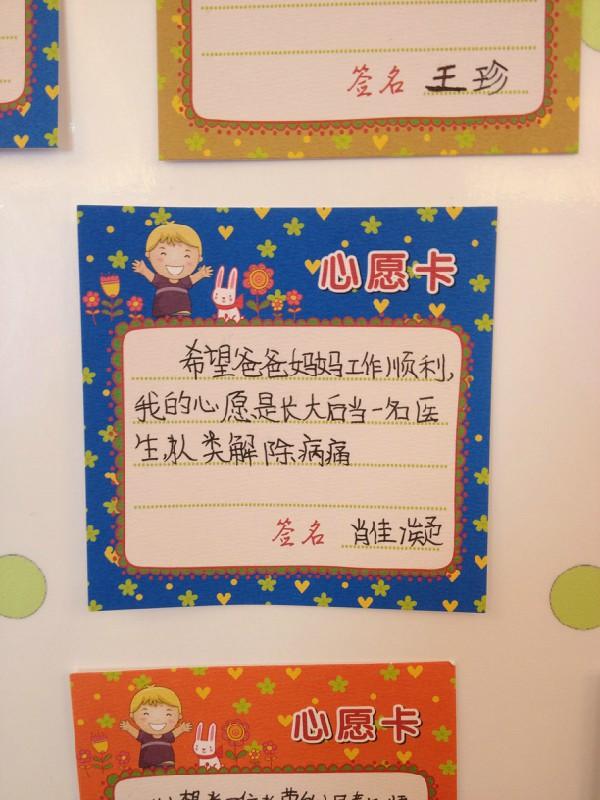 签名 王珍
心愿卡
希望爸爸妈妈工作顺利,
我的心愿是长大后当一名医
生,从类解除病痛
签名 肖佳凝
心愿卡